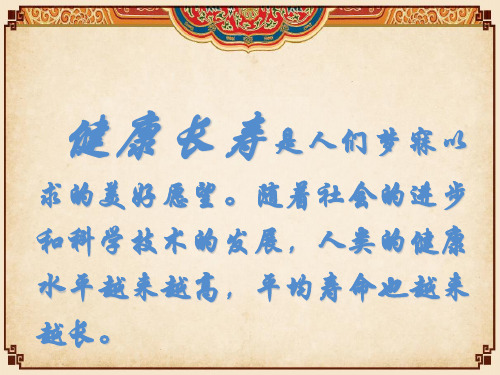 健康长寿是人们梦寐以
求的美好愿望。随着社会的进步
和科学技术的发展，人类的健康
水平越来越高，平均寿命也越来
越长。